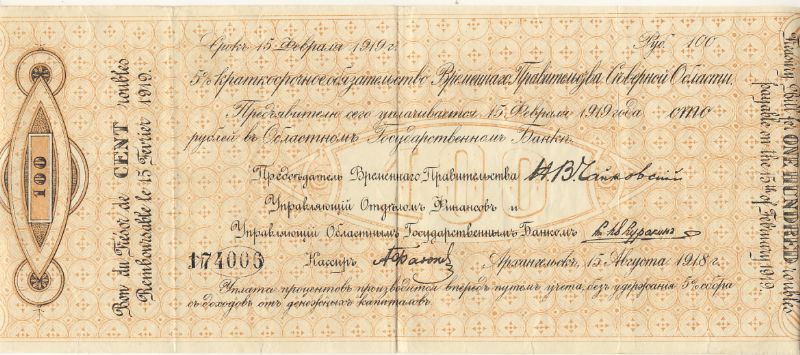 Срокъ 15 Февраля 1919 г.
Руб. 100
5% краткосрочное обязательство Временнаго Правительства Сѣверной Области.
Предъявителю сего уплачивается 15 Февраля 1919 года сто
рублей въ Областномъ Государственномъ Банкѣ.
Предсѣдатель Временнаго Правительства Н. В. Чайковскій
Управляющій Отдѣломъ Финансовъ и
Управляющій Областнымъ Государственнымъ Банкомъ Куракинъ
174006
Кассиръ
Архангельскъ, 15 Августа 1918 г.
Уплата процентовъ производится впередъ путемъ учета, безъ удержанія 5% сбора
съ доходовъ отъ денежныхъ капиталовъ.
100
100
Bon du Trésor de CENT roubles
Remboursable le 15 Fevrier 1919.
Treasury Bill for ONE HUNDRED roubles
payable on the 15th of February 1919.